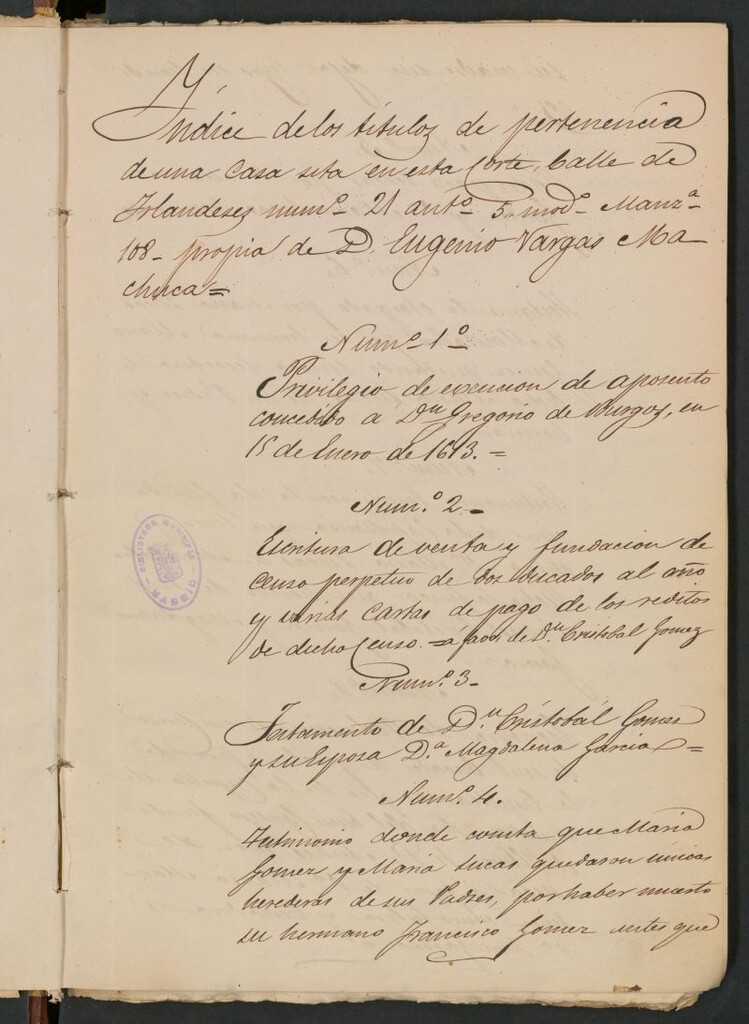 Yndice de los titulos de pertenencia
de una casa sita en esta Corte, Calle de
Irlandeses num.º 21 antº 5. modº Manzª
108 - propia de D. Eugenio Vargas Ma
chuca =
Num.º 1º
Privilegio de exencion de aposento
concedido á Dn Gregorio de Burgos, en
15 de Enero de 1613. =
Num.º 2
Escritura de venta y fundacion de
Censo perpetuo de dos ducados al año
y varias cartas de pago de los reditos
de dicho Censo. = á favor de Dn Cristobal Gomez
Num.º 3
Testamento de Dn Cristobal Gomez
y su Esposa D.ª Magdalena Garcia =
Num.º 4.
Testimonio donde consta que Maria
Gomez y Maria Lucas quedaron unicas
herederas de sus Padres, por haber muerto
su hermano Francisco Gomez antes que
BIBLIOTECA MUNICIPAL
MADRID